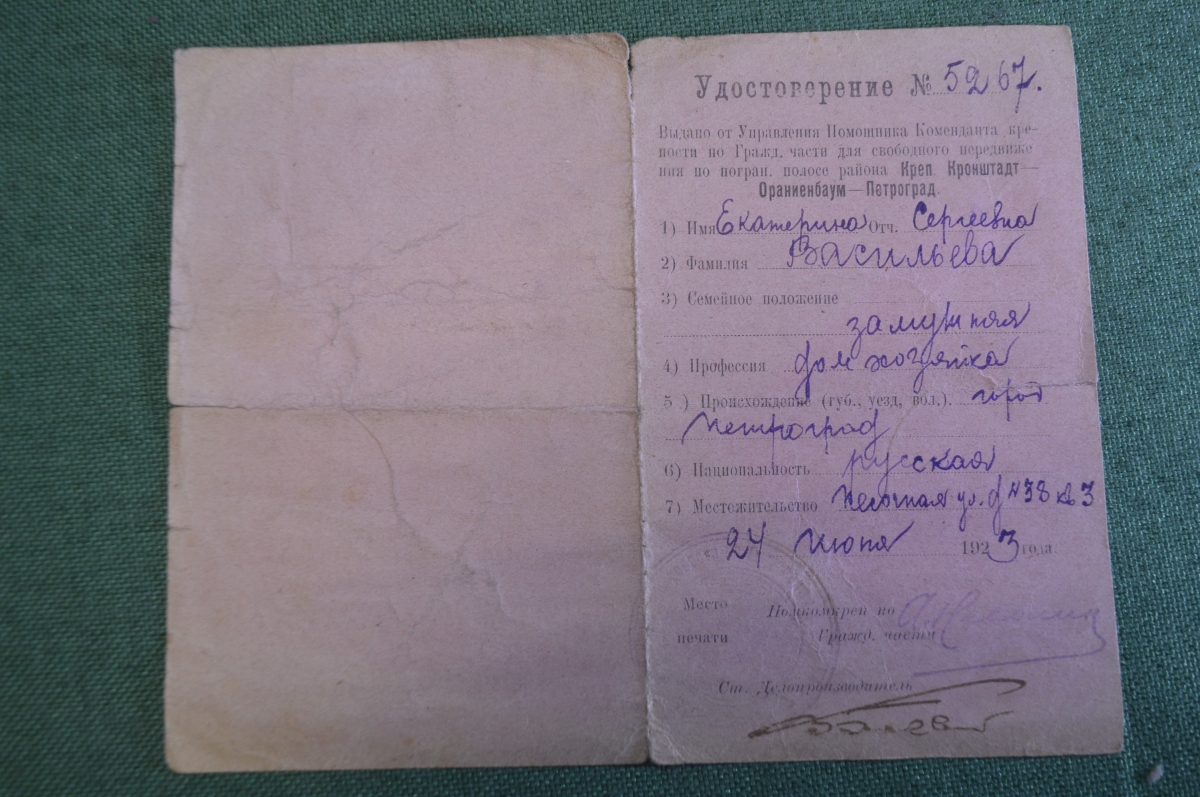 Удостоверение № 5267.
Выдано от Управления Помощника Коменданта кре-
пости по Гражд. части для свободного передвиже
ния по погран. полосе района Креп. Кронштадт—
Ораниенбаум—Петроград.
1) Имя Екатерина Отч. Сергеевна
2) Фамилия Васильева
3) Семейное положение
замужняя
4) Профессия дом хозяйка
5) Происхождение (губ., уезд, вол.). город
Петроград
6) Национальность русская
7) Местожительство ул. д №38 кв 3
„ 24 июня 1923 года.
Место Помкомкреп по
печати Гражд. части
Ст. Делопроизводитель